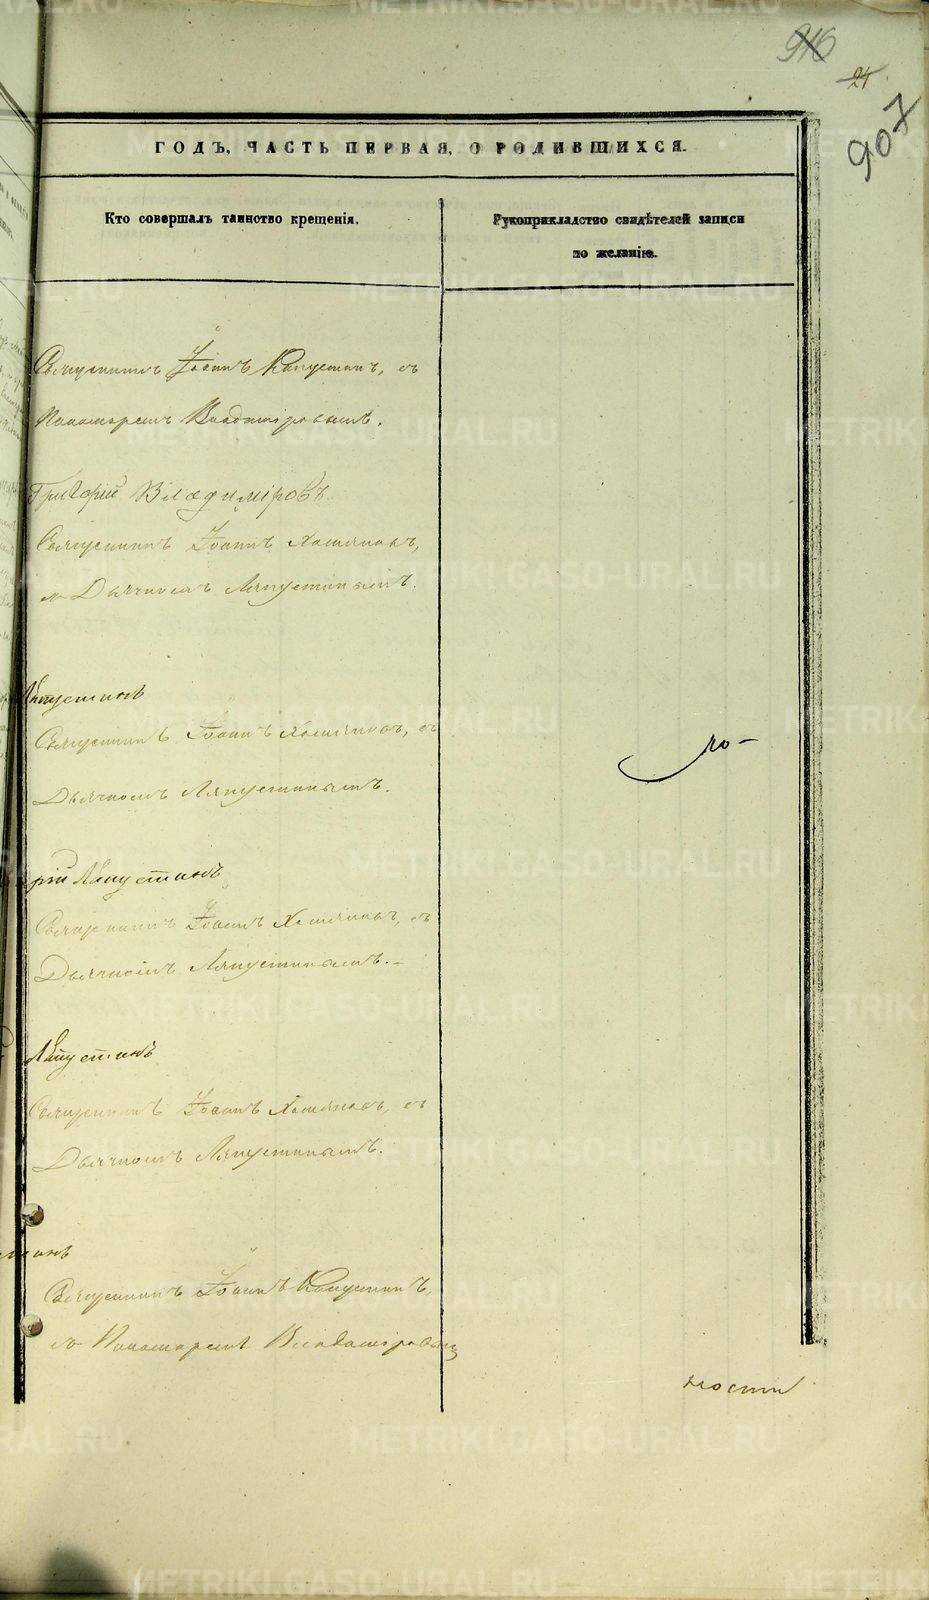 916
24
907
ГОДЪ, ЧАСТЬ ПЕРВАЯ, О РОДИВШИХСЯ.
Кто совершалъ таинство крещенія.
Рукоприкладство свидѣтелей записи
по желанію.
Священникъ Іоаннъ Капустинъ, съ
Пономаремъ Владиміровымъ.
Григорій Владиміровъ
Священникъ Іоаннъ Хомяковъ,
съ Дьячкомъ Ляпустинымъ.
Ляпустинъ
Священникъ Іоаннъ Хомяковъ, съ
Дьячкомъ Ляпустинымъ.
по-
рій Ляпустинъ
Священникъ Іоаннъ Хомяковъ, съ
Дьячкомъ Ляпустинымъ.-
Ляпустинъ
Священникъ Іоаннъ Хомяковъ, съ
Дьячкомъ Ляпустинымъ.
Священникъ Іоаннъ Капустинъ,
съ Пономаремъ Владиміровым
ности
METRIKI.GASO-URAL.RU